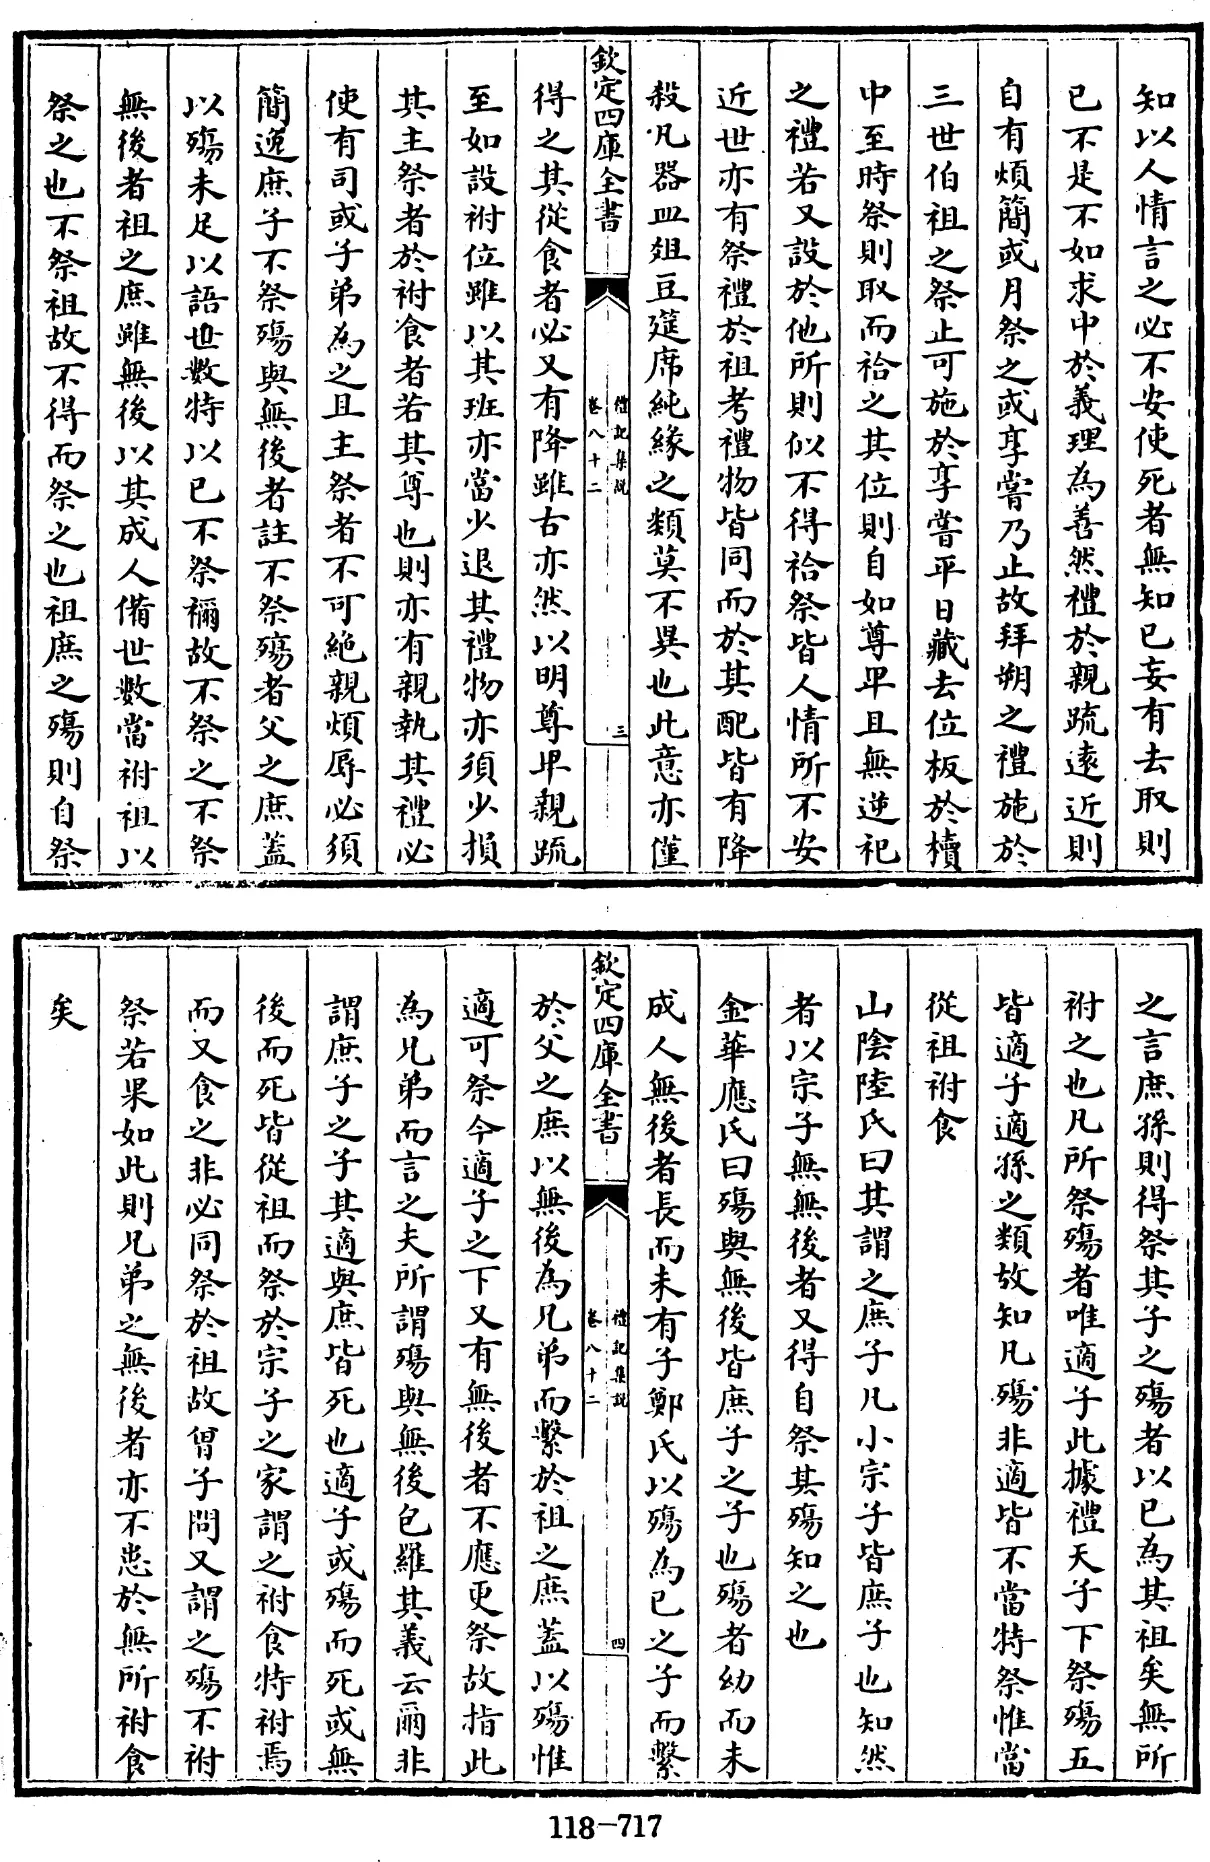 知以人情言之必不安使死者無知已妄有去取則
已不是不如求中於義理為善然禮於親疏遠近則
自有煩簡或月祭之或享嘗乃止故拜朔之禮施於
三世伯祖之祭止可施於享嘗平日藏去位板於櫝
中至時祭則取而祫之其位則自如尊卑且無逆祀
之禮若又設於他所則似不得祫祭皆人情所不安
近世亦有祭禮於祖考禮物皆同而於其配皆有降
殺凡器皿俎豆筵席純緣之類莫不異也此意亦僅
欽定四庫全書
禮記集說
卷八十二
三
得之其從食者必又有降雖古亦然以明尊卑親疏
至如設祔位雖以其班亦當少退其禮物亦須少損
其主祭者於祔食者若其尊也則亦有親執其禮必
使有司或子弟為之且主祭者不可絶親煩辱必須
簡逸庶子不祭殤與無後者註不祭殤者父之庶蓋
以殤未足以語世數特以已不祭禰故不祭之不祭
無後者祖之庶雖無後以其成人備世數當祔祖以
祭之也不祭祖故不得而祭之也祖庶之殤則自祭
之言庶孫則得祭其子之殤者以已為其祖矣無所
祔之也凡所祭殤者唯適子此據禮天子下祭殤五
皆適子適孫之類故知凡殤非適皆不當特祭惟當
從祖祔食
山陰陸氏曰其謂之庶子凡小宗子皆庶子也知然
者以宗子無無後者又得自祭其殤知之也
金華應氏曰殤與無後皆庶子之子也殤者幼而未
成人無後者長而未有子鄭氏以殤為已之子而繫
欽定四庫全書
禮記集說
卷八十二
四
於父之庶以無後為兄弟而繫於祖之庶蓋以殤惟
適可祭今適子之下又有無後者不應更祭故指此
為兄弟而言之夫所謂殤與無後包羅其義云爾非
謂庶子之子其適與庶皆死也適子或殤而死或無
後而死皆從祖而祭於宗子之家謂之祔食特祔焉
而又食之非必同祭於祖故曾子問又謂之殤不祔
祭若果如此則兄弟之無後者亦不患於無所祔食
矣
118-717